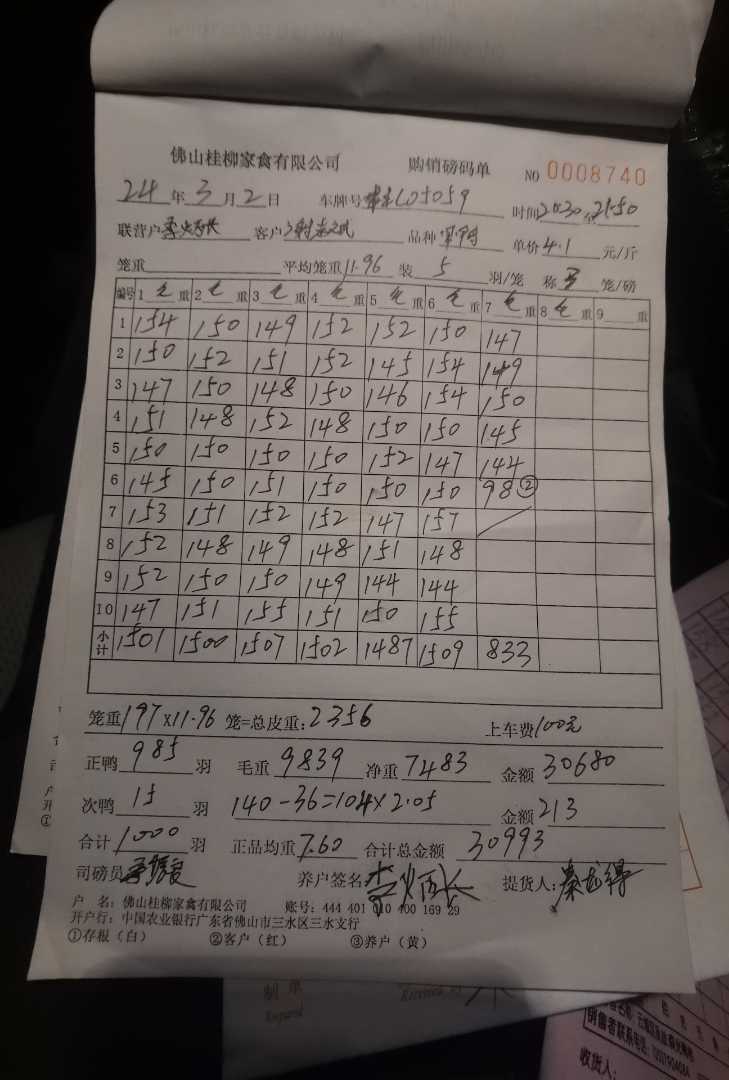 佛山桂柳家禽有限公司 购销磅码单 NO 0008740
24年3月2日 车牌号 L05059 时间2030至2150
联营户 客户 品种 单价4.1元/斤
笼重 平均笼重11.96 装5羽/笼 称 笼/磅
编号 1毛重 2毛重 3毛重 4毛重 5毛重 6毛重 7毛重 8毛重 9 重
1 154 150 149 152 152 150 147
2 150 152 151 152 145 154 149
3 147 150 148 150 146 154 150
4 151 148 152 148 150 150 145
5 150 150 150 150 152 147 144
6 145 150 151 150 150 150 98②
7 153 151 152 152 147 157
8 152 148 149 148 151 148
9 152 150 150 149 144 144
10 147 151 155 151 150 155
小计 1501 1500 1507 1502 1487 1509 833
笼重197×11.96笼=总皮重:2356 上车费100元
正鸭985羽 毛重9839 净重7483 金额30680
次鸭15羽 140-36=104×2.05 金额213
合计1000羽 正品均重7.60 合计总金额30993
司磅员 养户签名: 提货人:
户 名: 佛山桂柳家禽有限公司 账号: 444 401 010 400 169 29
开户行: 中国农业银行广东省佛山市三水区三水支行
①存根(白) ②客户(红) ③养户(黄)
制单
销售者联系电话:
收货人: